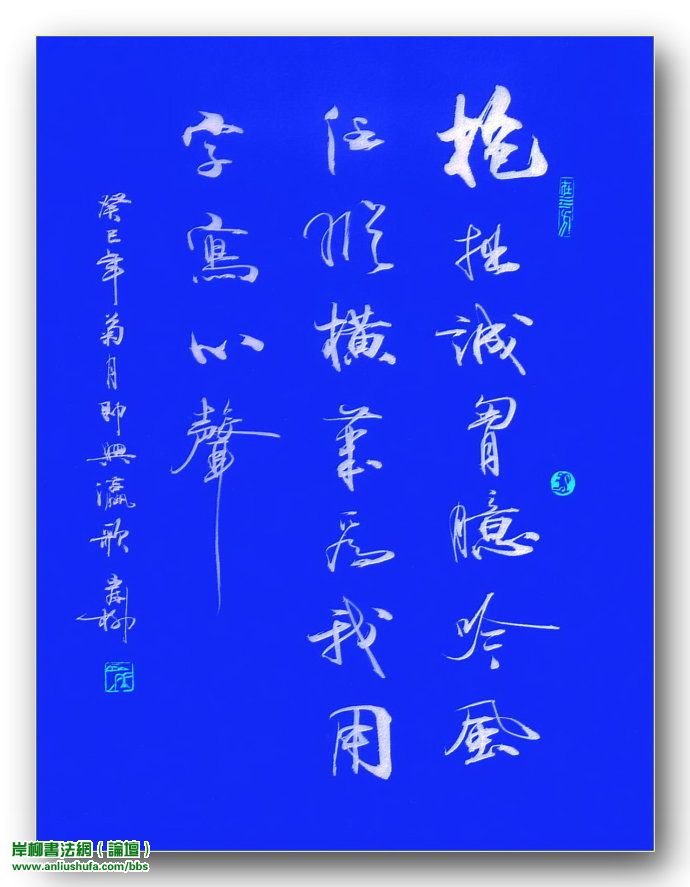 抱拙誠胷臆吟風
任縱橫筆為我用
字寫心聲
癸巳年菊月即興瀛歌岸柳
岸柳書法網（論壇）
www.anliushufa.com/bbs